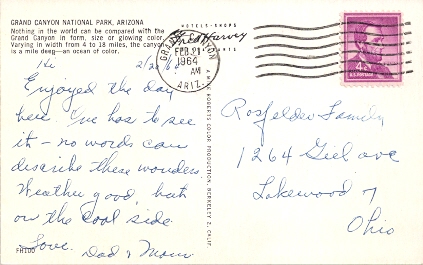 GRAND CANYON NATIONAL PARK, ARIZONA
Nothing in the world can be compared with the
Grand Canyon in form, size or glowing color.
Varying in width from 4 to 18 miles, the canyon
is a mile deep—an ocean of color.
HOTELS-SHOPS
Fred Harvey
GRAND CANYON
FEB 21
AM
1964
ARIZ.
4¢
U.S. POSTAGE
Hi
Enjoyed the day
here. One has to see
it - no words can
describe these wonders
Weather good, but
on the cool side
Love.
Dad & Mom
FH100
ROBERTS COLOR PRODUCTION, BERKELEY 2, CALIF.
Rosfelder Family
1264 Giel ave
Lakewood 7
Ohio